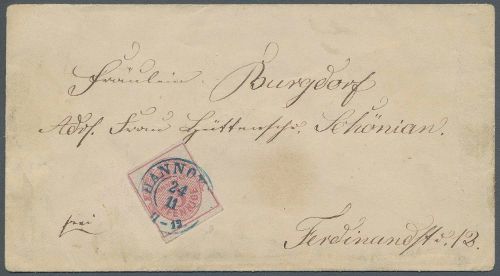 Fräulein Burgdorf
Adr. Frau Hüttensch. Schönian.
HANNOV
24
11
11-12
frei
Ferdinandstr. 12.